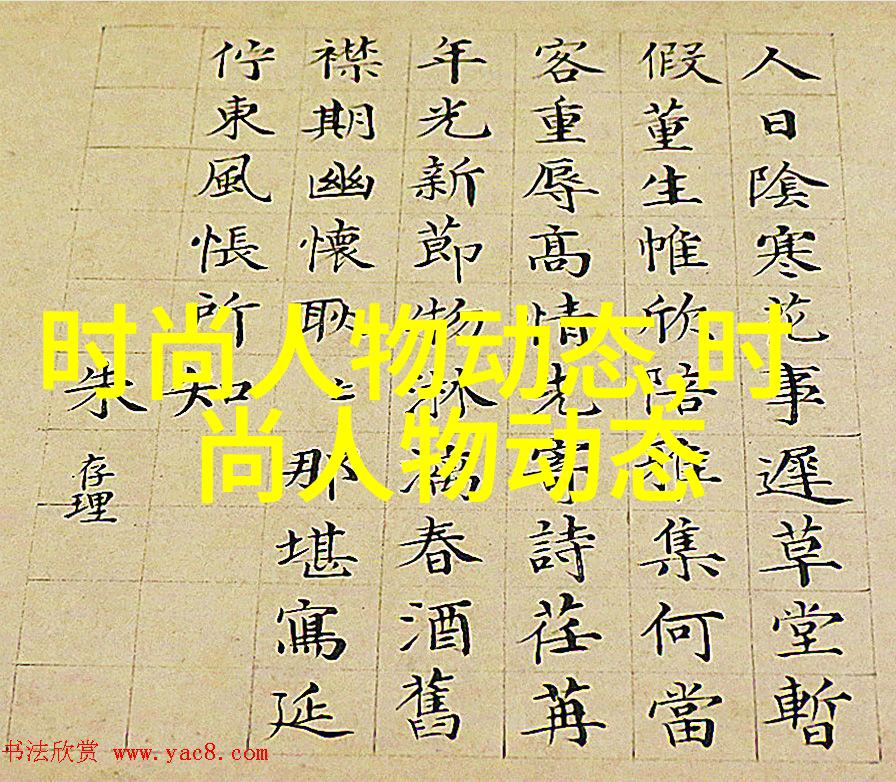 人日陰寒花事遲草堂暫
假董生帷欣陪雅集何當
客重辱高情先寄詩荏苒
年光新節物淋漓春酒舊
襟期幽懷耿〻那堪寫延
佇東風悵所知
朱存理
时尚人物动态,时
尚人物动态
书法欣赏 www.yac8.com